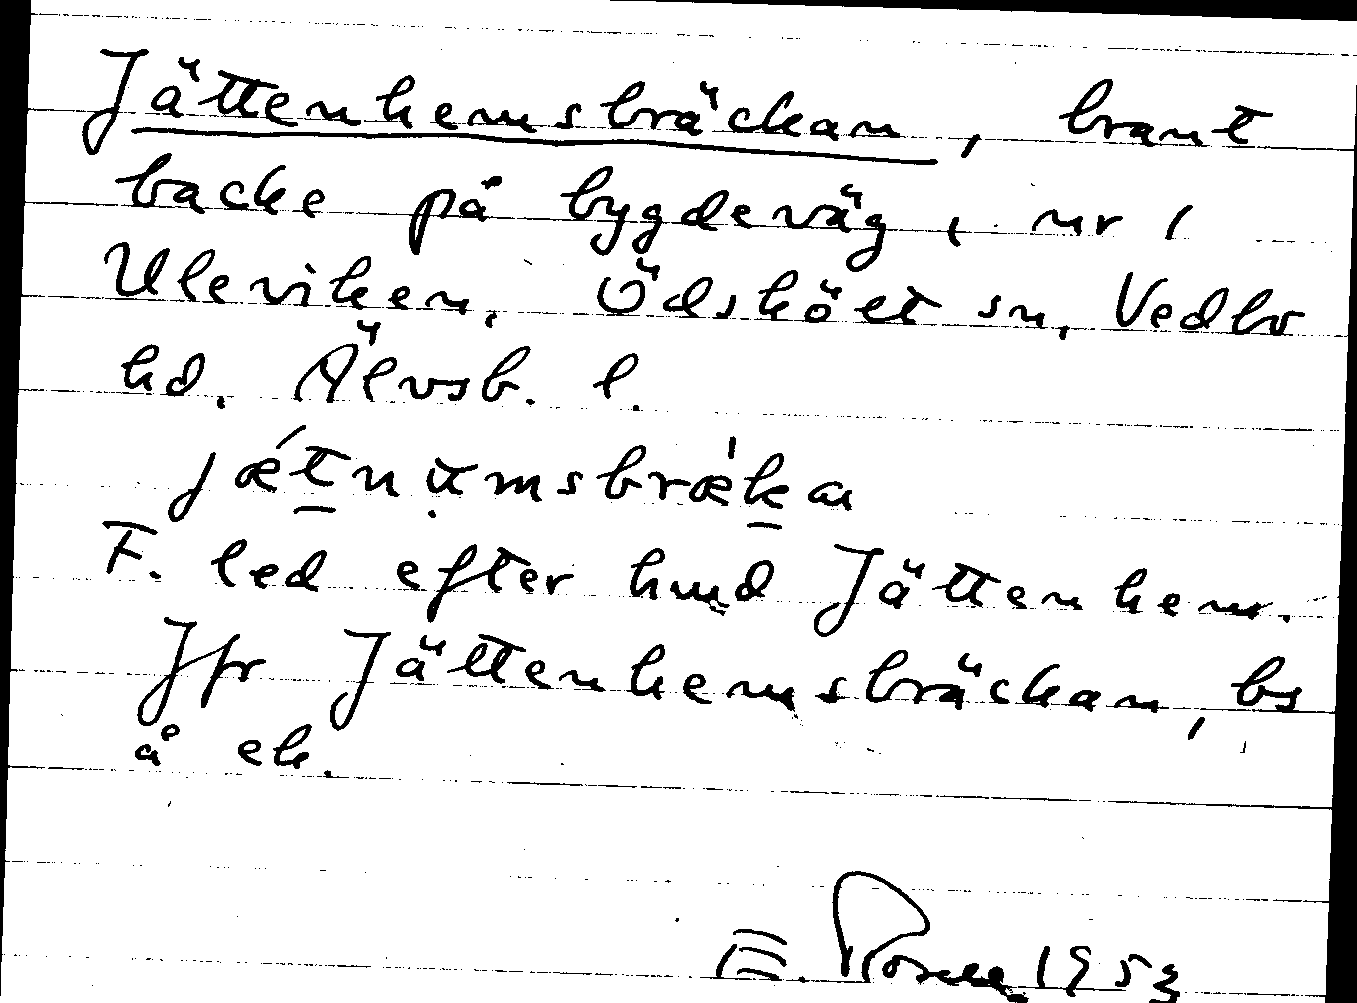 Jättenhemsbräckan, brant
backe på bygdeväg, nr 1
Uleviken, Ödsköelt sn, Vedbo
hd. Älvsb. l.
jætnumsbræka
F. led efter hmd Jättenhem.
Jfr Jättenhemsbräckan, bs
å ek.
E. 1953